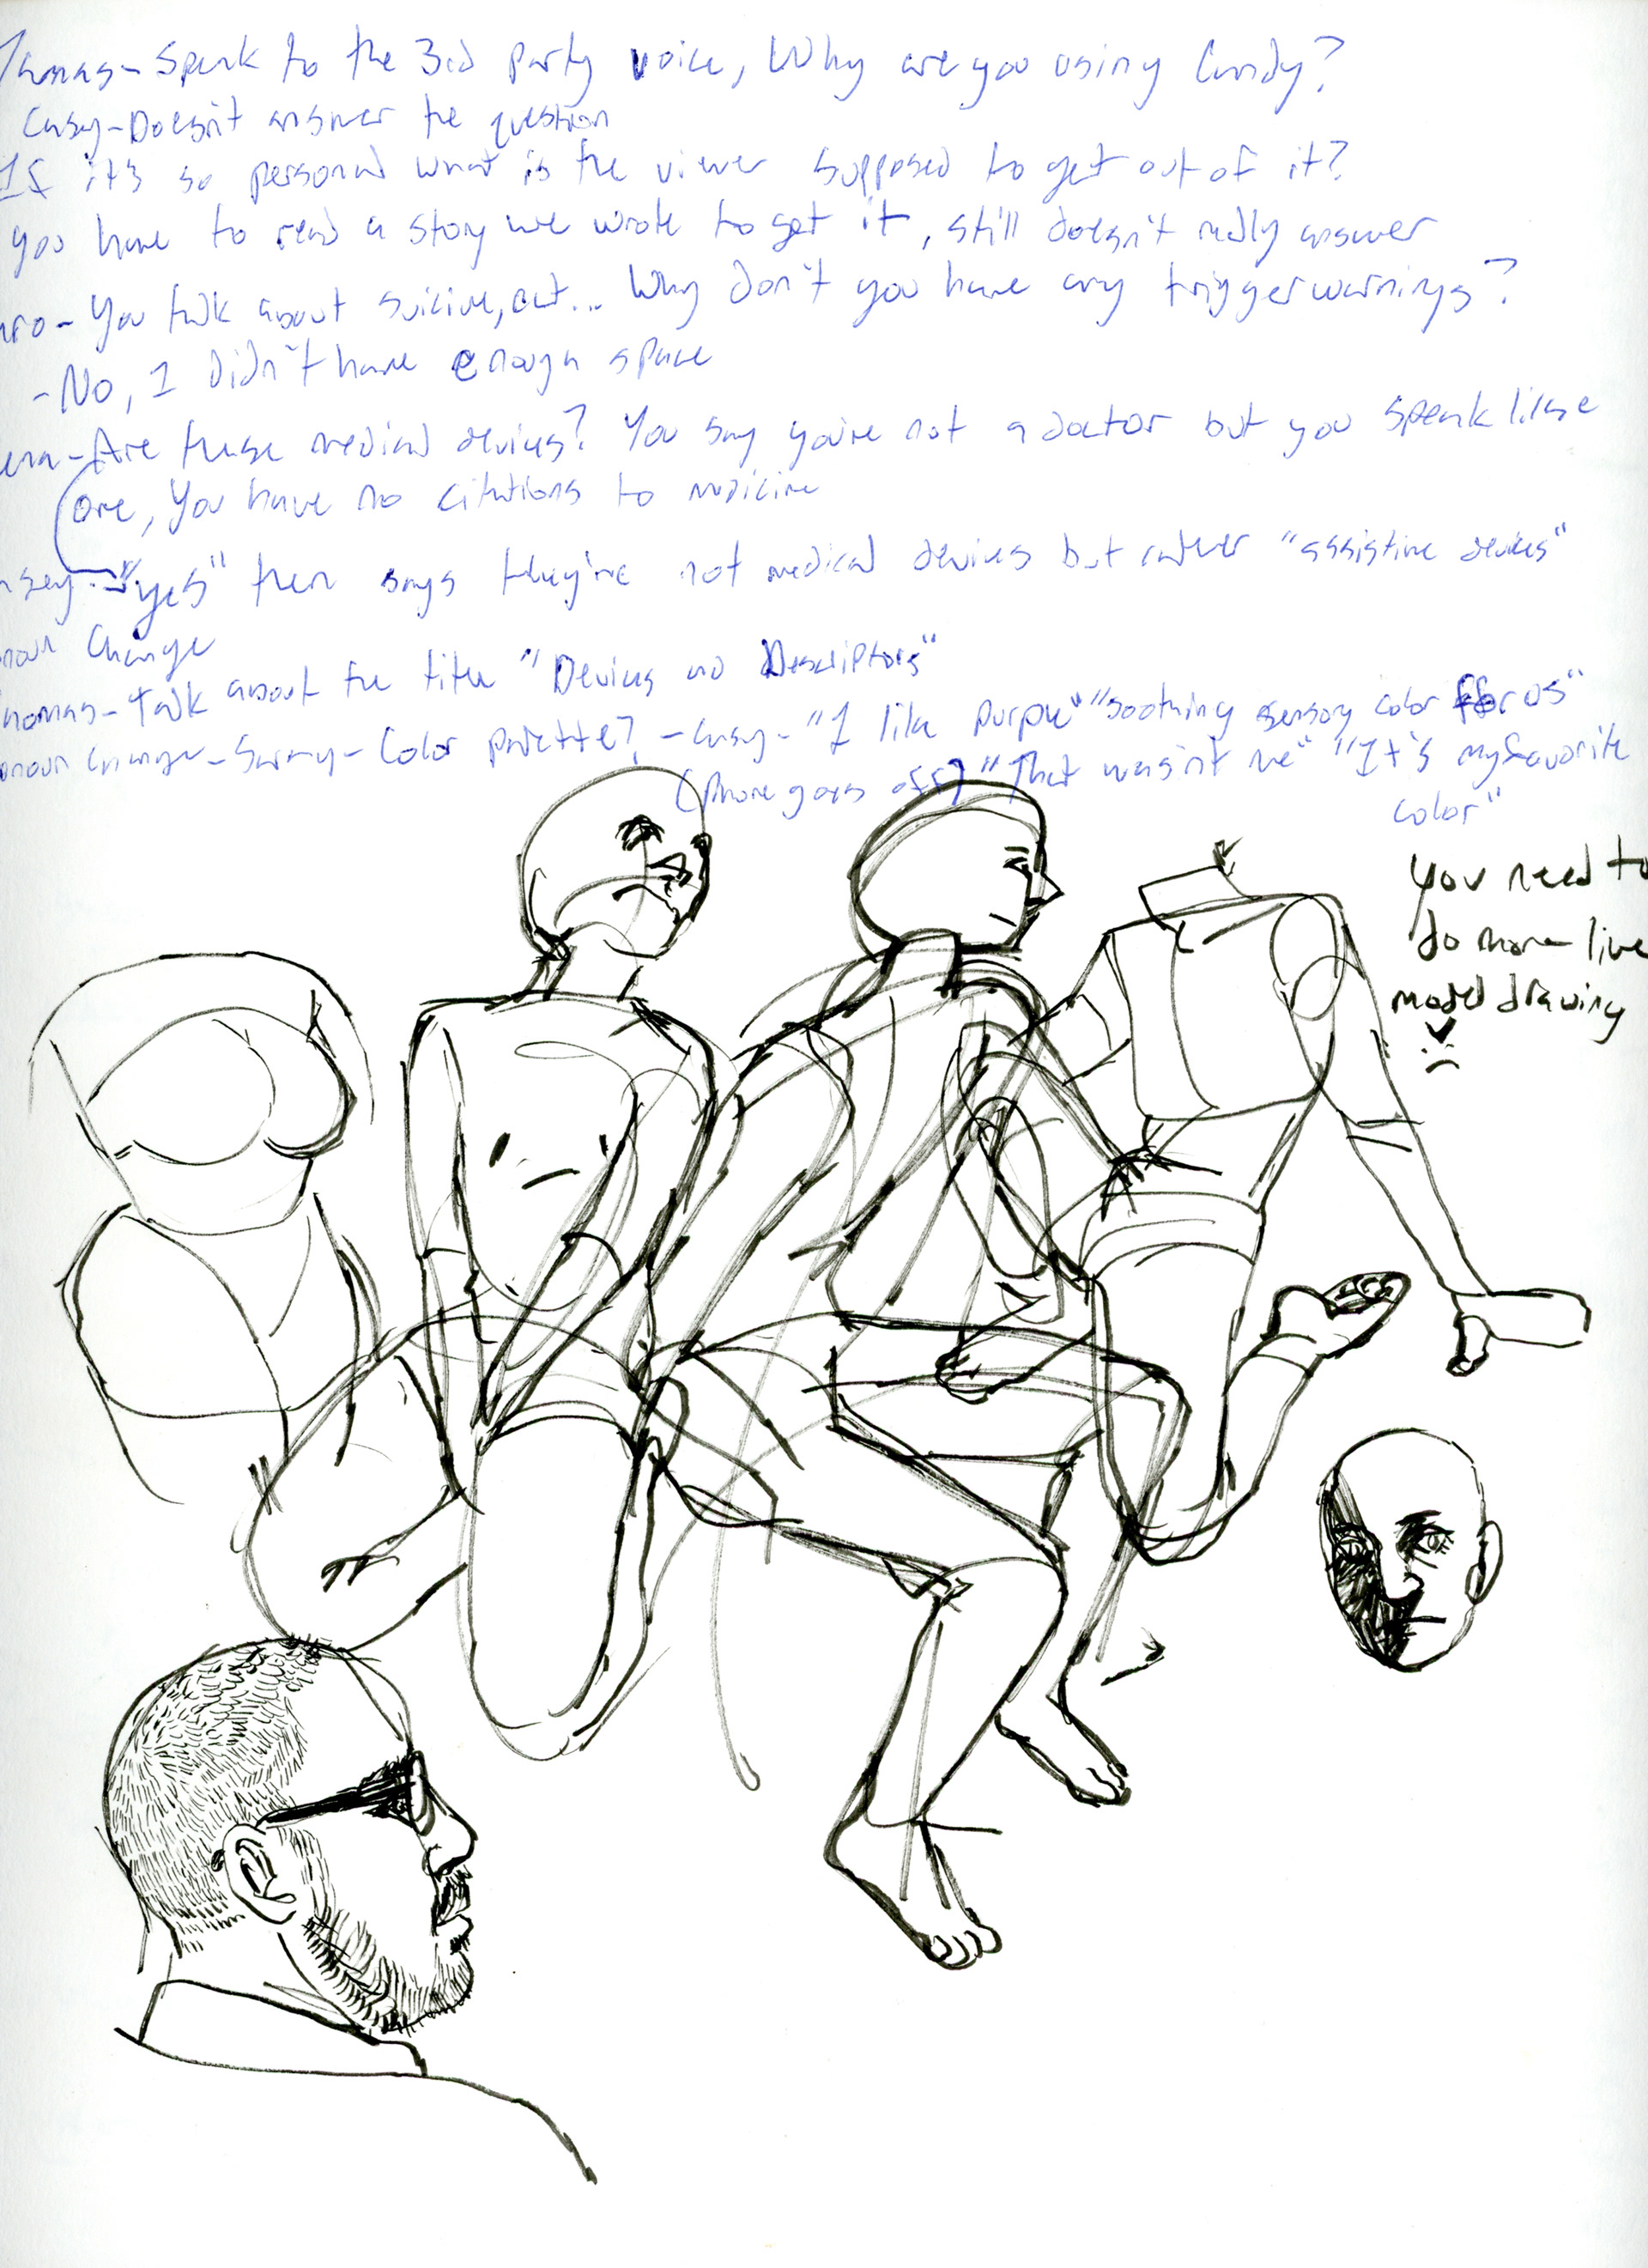 Thomas- Speak to the 3rd party voice, Why are you using Candy?
Casey- Doesn't answer the question
If it's so personal what is the viewer supposed to get out of it?
you have to read a story we wrote to get it, still doesn't really answer
- You talk about suicide, ect... Why don't you have any trigger warnings?
- No, I didn't have enough space
- Are these medical devices? You say you're not a doctor but you speak like
one, You have no citations to medicine
sey- "yes" then says they're not medical devices but rather "assistive devices"
noun Change
homas- Talk about the title "Devices no Descriptors"
onoun Change - - Color palette? - Casey- "I like purple" "soothing sensory color for us"
(Phone goes off) "That wasn't me" "It's my favorite
color"
you need to
do more live
model drawing